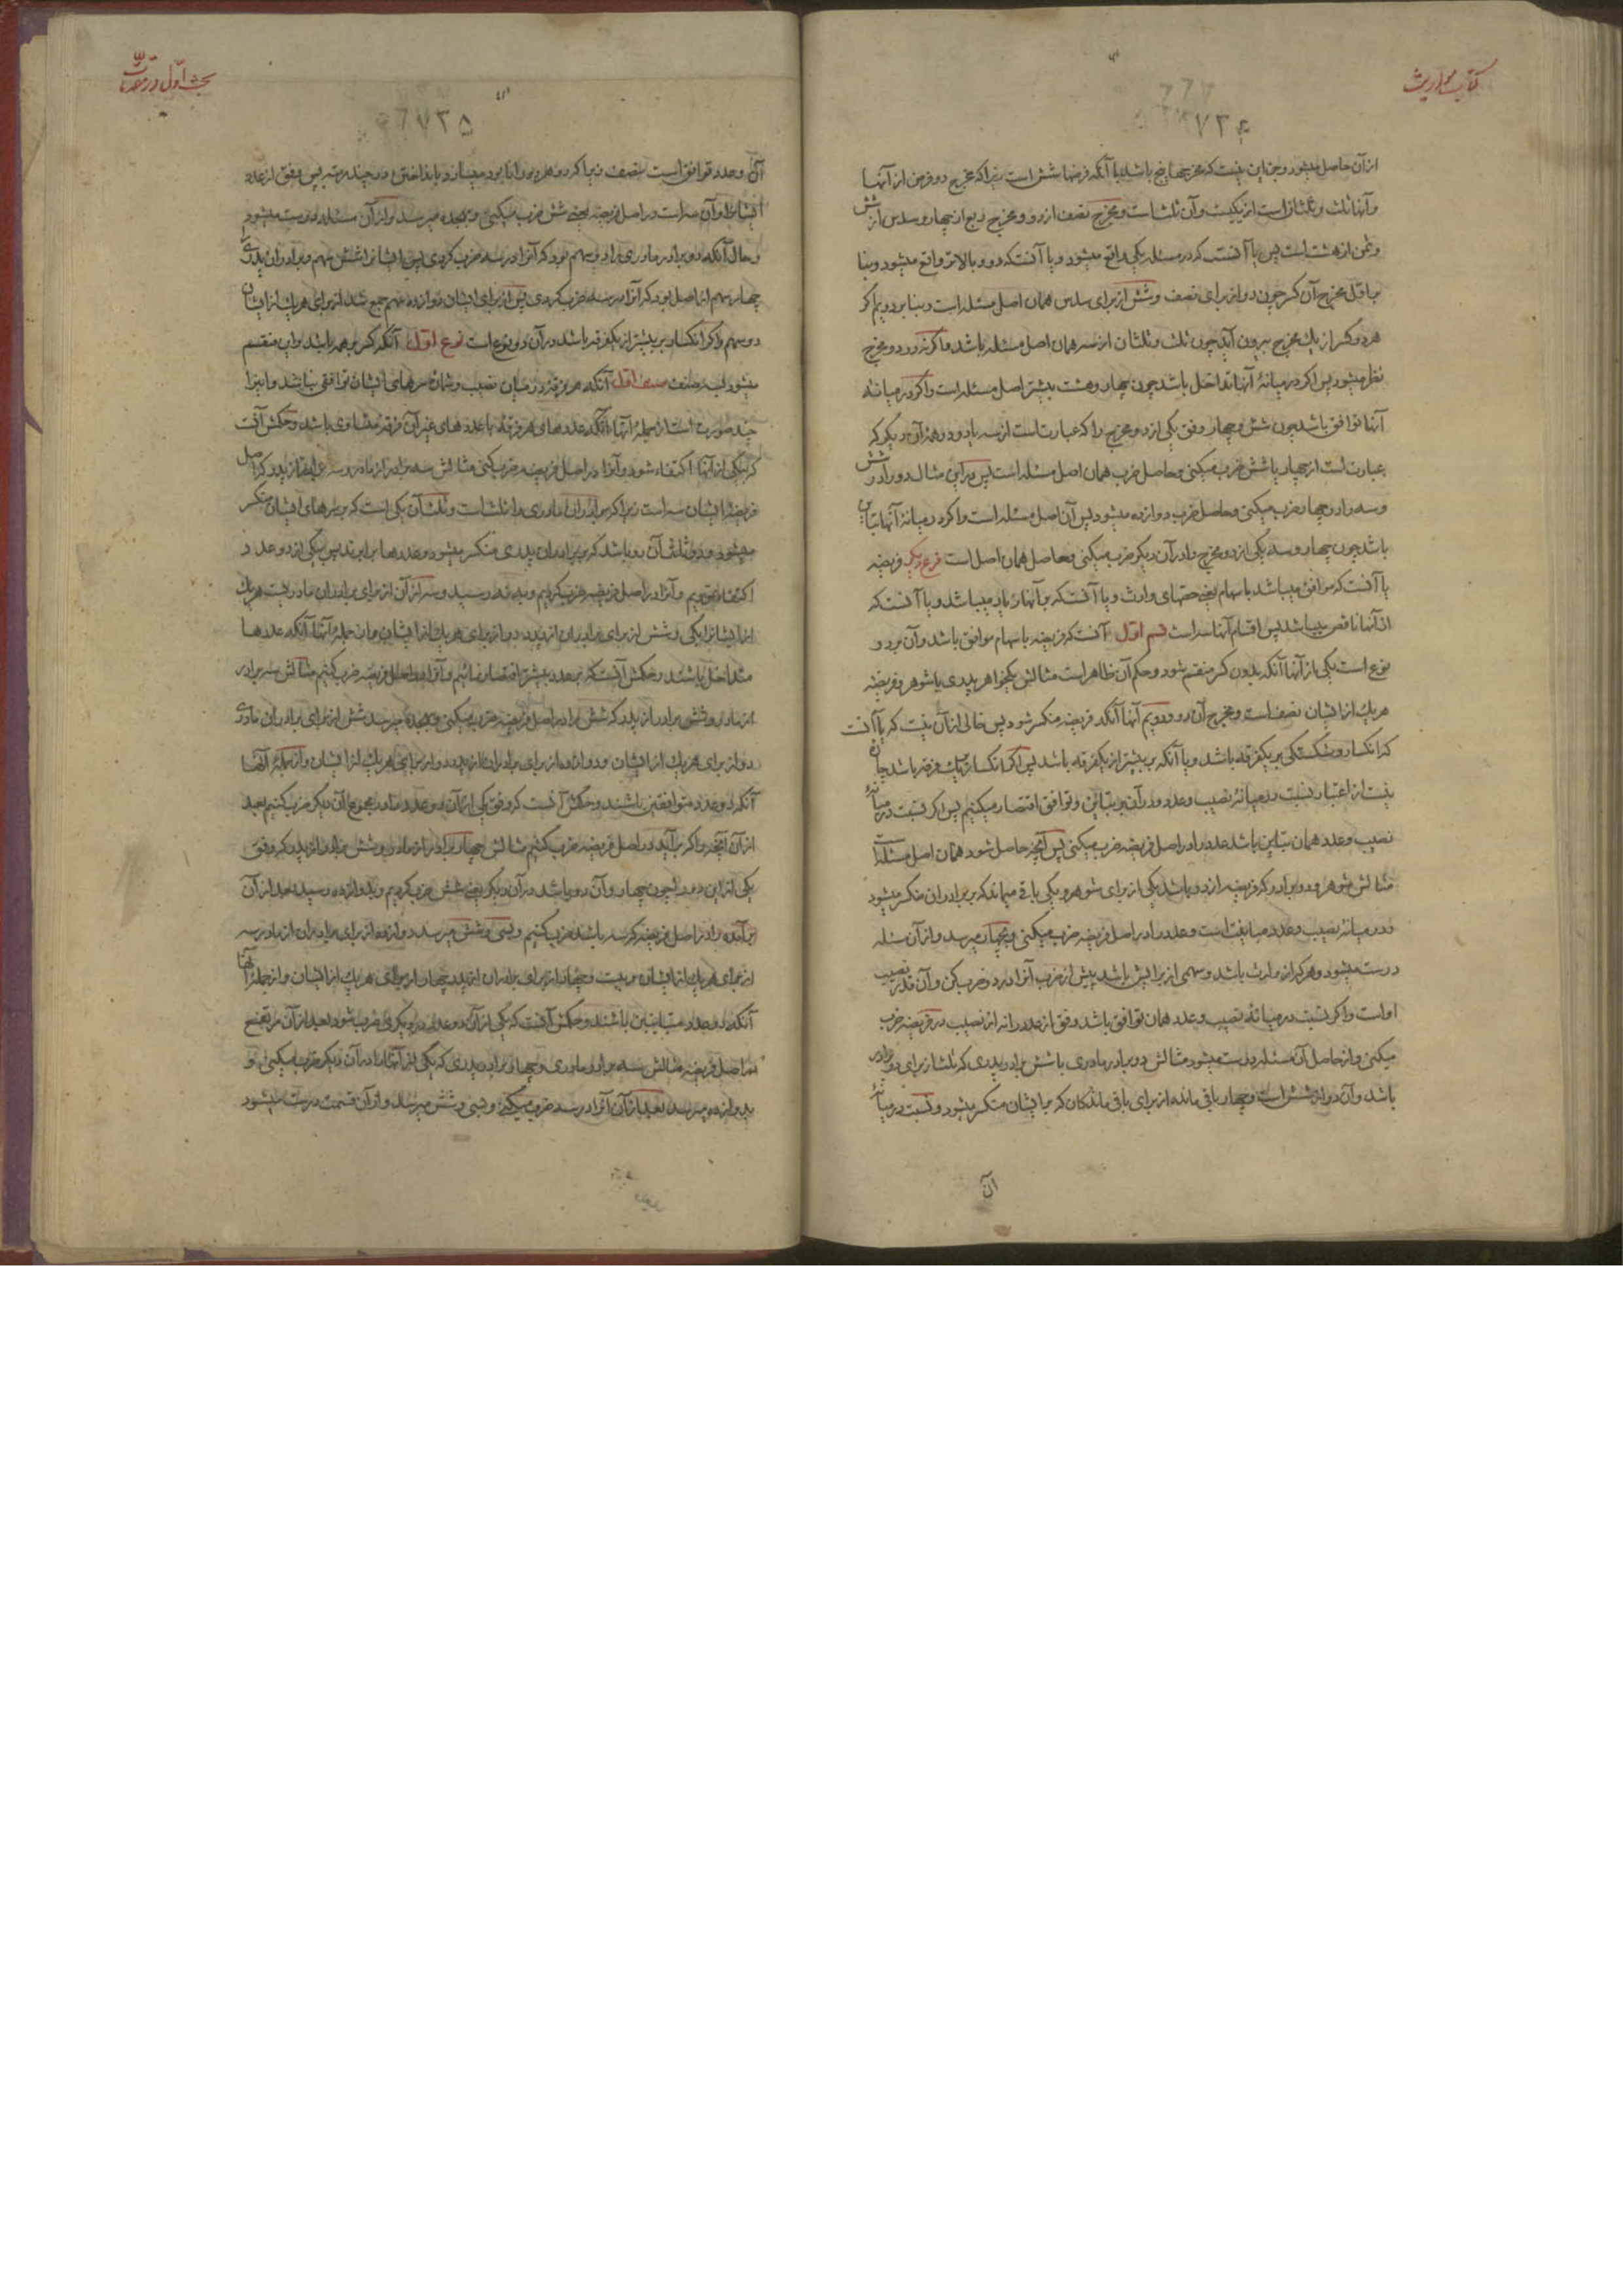 کتاب مواریث
۷۳۴
از آن حاصل میشود و جز این نیست که مخرجها پنج باشد با آنکه فرضها شش است زیرا که مخرج دو فرض از آنها
و آنها ثلث و ثلثان است از یکیست و آن ثلث است و مخرج نصف از دو و مخرج ربع از چهار و سدس از شش
و ثمن از هشت است پس یا آنست که در مسئله یکی واقع میشود و یا آنست که دو و بالاتر واقع میشود و بنا
بر اول مخرج آن کسر چون دو از برای نصف و شش از برای سدس همان اصل مسئله است و بنا بر دویم اگر
هر دو کسر از یک مخرج بیرون آید چون ثلث و ثلثان از سه همان اصل مسئله باشد و اگر نه در دو مخرج
نظر میشود پس اگر در میانهٔ آنها تداخل باشد چون چهار و هشت بیشتر اصل مسئله است و اگر در میانهٔ
آنها توافق باشد چون شش و چهار وفق یکی از دو مخرج را که عبارت است از سه یا دو در همهٔ آن دیگر که
عبارت است از چهار یا شش ضرب میکنی و حاصل ضرب همان اصل مسئله است پس در این مثال دو را در شش
و سه را در چهار ضرب میکنی و حاصل ضرب دوازده میشود پس آن اصل مسئله است و اگر در میانهٔ آنها تباین
باشد چون چهار و سه یکی از دو مخرج را در آن دیگر ضرب میکنی و حاصل همان اصل است فرع دیگر فریضه
یا آنست که موافق میباشد با سهام یعنی حصّهای وارث و یا آنست که بر آنها زیاد میباشد و یا آنست که
از آنها ناقص میباشد پس اقسام آنها سه است قسم اول آنست که فریضه با سهام موافق باشد و آن بر دو
نوع است یکی از آنها آنکه بدون کسر منقسم شود و حکم آن ظاهر است مثالش یکخواهر پدری با شوهر و فریضه
هر یک از ایشان نصف است و مخرج آن دو و دویم آنها آنکه فریضه منکسر شود پس خالی از آن نیست که یا آنست
که انکسار و شکستگی بر یکفرقه باشد و یا آنکه بر بیشتر از یکفرقه باشد پس اگر انکسار بر یک فرقه باشد چاره
نیست از اعتبار نسبت در میانهٔ نصیب و عدد و در آن بر تباین و توافق اقتصار میکنیم پس اگر نسبت در میانهٔ
نصیب و عدد همان تباین باشد عدد را در اصل فریضه ضرب میکنی پس آنچه حاصل شود همان اصل مسئله است
مثالش شوهر و دو برادر که فریضه از دو باشد یکی از برای شوهر و یکی باقی میماند که بر برادران منکسر میشود
و در میانهٔ نصیب و عدد مباینت است و عدد را در اصل فریضه ضرب میکنی و بچهار میرسد و از آن مسئله
درست میشود و هر که از وارث باشد و سهمی از برایش باشد پیش از ضرب آنرا در دو ضرب کن و آن قدر نصیب
او است و اگر نسبت در میانهٔ نصیب و عدد همان توافق باشد وفق از عدد را نه از نصیب در فریضه ضرب
میکنی و از حاصل آن مسئله درست میشود مثالش دو برادر مادری با شش برادر پدری که ثلث از برای دو برادر
باشد و آن دو از شش است و چهار باقی مانده از برای باقی ماندگان که بر ایشان منکسر میشود و نسبت در میانهٔ
آن
بحث اول در مقدمات
۷۳۵
آن و عدد توافق است بنصف زیرا که دو هر دو را نابود میسازد بانداختن در چند مرتبه پس وفق از عدد
ایشان و آن سه است در اصل فریضه یعنی شش ضرب میکنی و بهجده میرسد و از آن مسئله درست میشود
و حال آنکه دو برادر مادری را دو سهم بود که آنرا در سه ضرب کردی پس ایشانرا شش سهم و برادران پدری
چهار سهم از اصل بود که آنرا در سه ضرب کردی پس از برای ایشان دوازده سهم جمع شد از برای هر یک از ایشان
دو سهم و اگر انکسار بر بیشتر از یکفرقه باشد در آن دو نوع است نوع اول آنکه کسر بر همه باشد و این منقسم
میشود بسه صنف صنف اول آنکه هر فرقه در میان نصیب و شمار سرهای ایشان توافقی نباشد و اینرا
چند صورت است از جملهٔ آنها آنکه عددهای هر فرقه با عددهای غیر آن فرقه متساوی باشد و حکمش آنست
که بیکی از آنها اکتفاء شود و آنرا در اصل فریضه ضرب کنی مثالش سه برادر از مادر و سه برادر از پدر که اصل
فریضهٔ ایشان سه است زیرا که برادران مادری را ثلث است و ثلث آن یکی است که بر سرهای ایشان منکسر
میشود و دو ثلث آن دو باشد که بر برادران پدری منکسر میشود و عددها برابرند پس بیکی از دو عدد
اکتفا نمودیم و آنرا در اصل فریضه ضرب کردیم و به نه رسید و سه از آن از برای برادران مادریست هر یک
از ایشانرا یکی و شش از برای برادران از پدر دو از برای هر یک از ایشان و از جملهٔ آنها آنکه عددها
متداخل باشند و حکمش آنست که بر عدد بیشتر اقتصار نمائیم و آنرا در اصل فریضه ضرب کنیم مثالش سه برادر
از مادر و شش برادر از پدر که شش را در اصل فریضه ضرب میکنی و بهجده میرسد شش از برای برادران مادری
دو از برای هر یک از ایشان و دوازده از برای برادران از پدر دو از برای هر یک از ایشان و از جملهٔ آنها
آنکه دو عدد متوافقین باشند و حکمش آنست که وفق یکی از آن دو عدد را در مجموع آن دیگر ضرب کنیم بعد
از آن آنچه را که برآید در اصل فریضه ضرب کنیم مثالش چهار برادر از مادر و شش برادر از پدر که وفق
یکی از این دو چون چهار و آن دو باشد در آن دیگر یعنی شش ضرب کردیم و بدوازده رسید بعد از آن
برآمده را در اصل فریضه که سه باشد ضرب کنیم و بسی و شش میرسد دوازده از برای برادران از مادر سه
از برای هر یک از ایشان و بیست و چهار از برای برادران از پدر چهار از برای هر یک از ایشان و از جملهٔ آنها
آنکه دو عدد متباینین باشند و حکمش آنست که یکی از آن دو عدد در دیگری ضرب شود بعد از آن مرتفع
در اصل فریضه مثالش سه برادر مادری و چهار برادر پدری که یکی از آنها را در آن دیگر ضرب میکنی و
بدوازده میرسد بعد از آن آنرا در سه ضرب میکنی و بسی و شش میرسد و از آن قسمت درست میشود